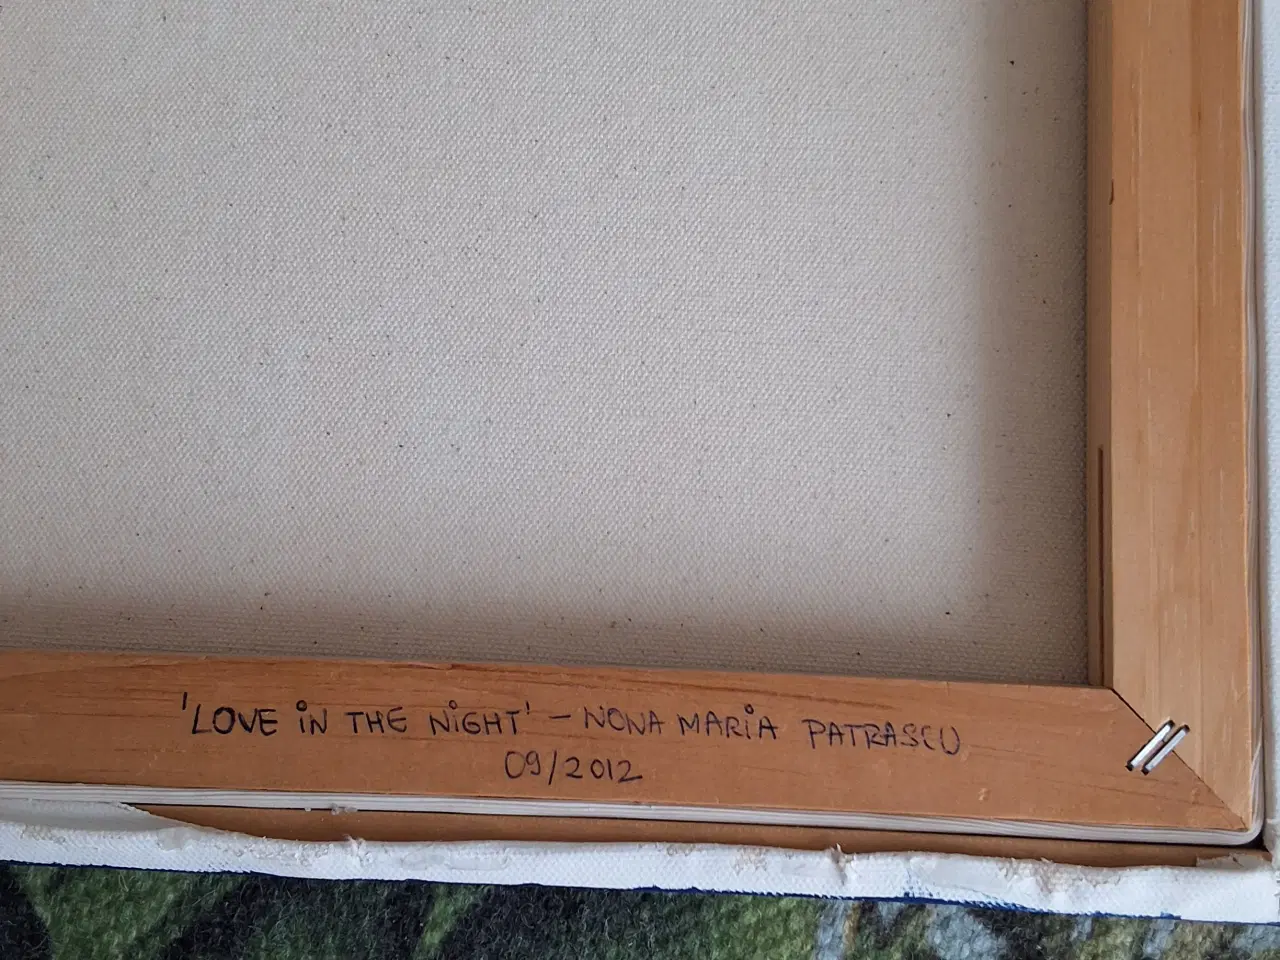 'LOVE iN THE NiGHT' – NONA MARiA PATRASCU
09/2012